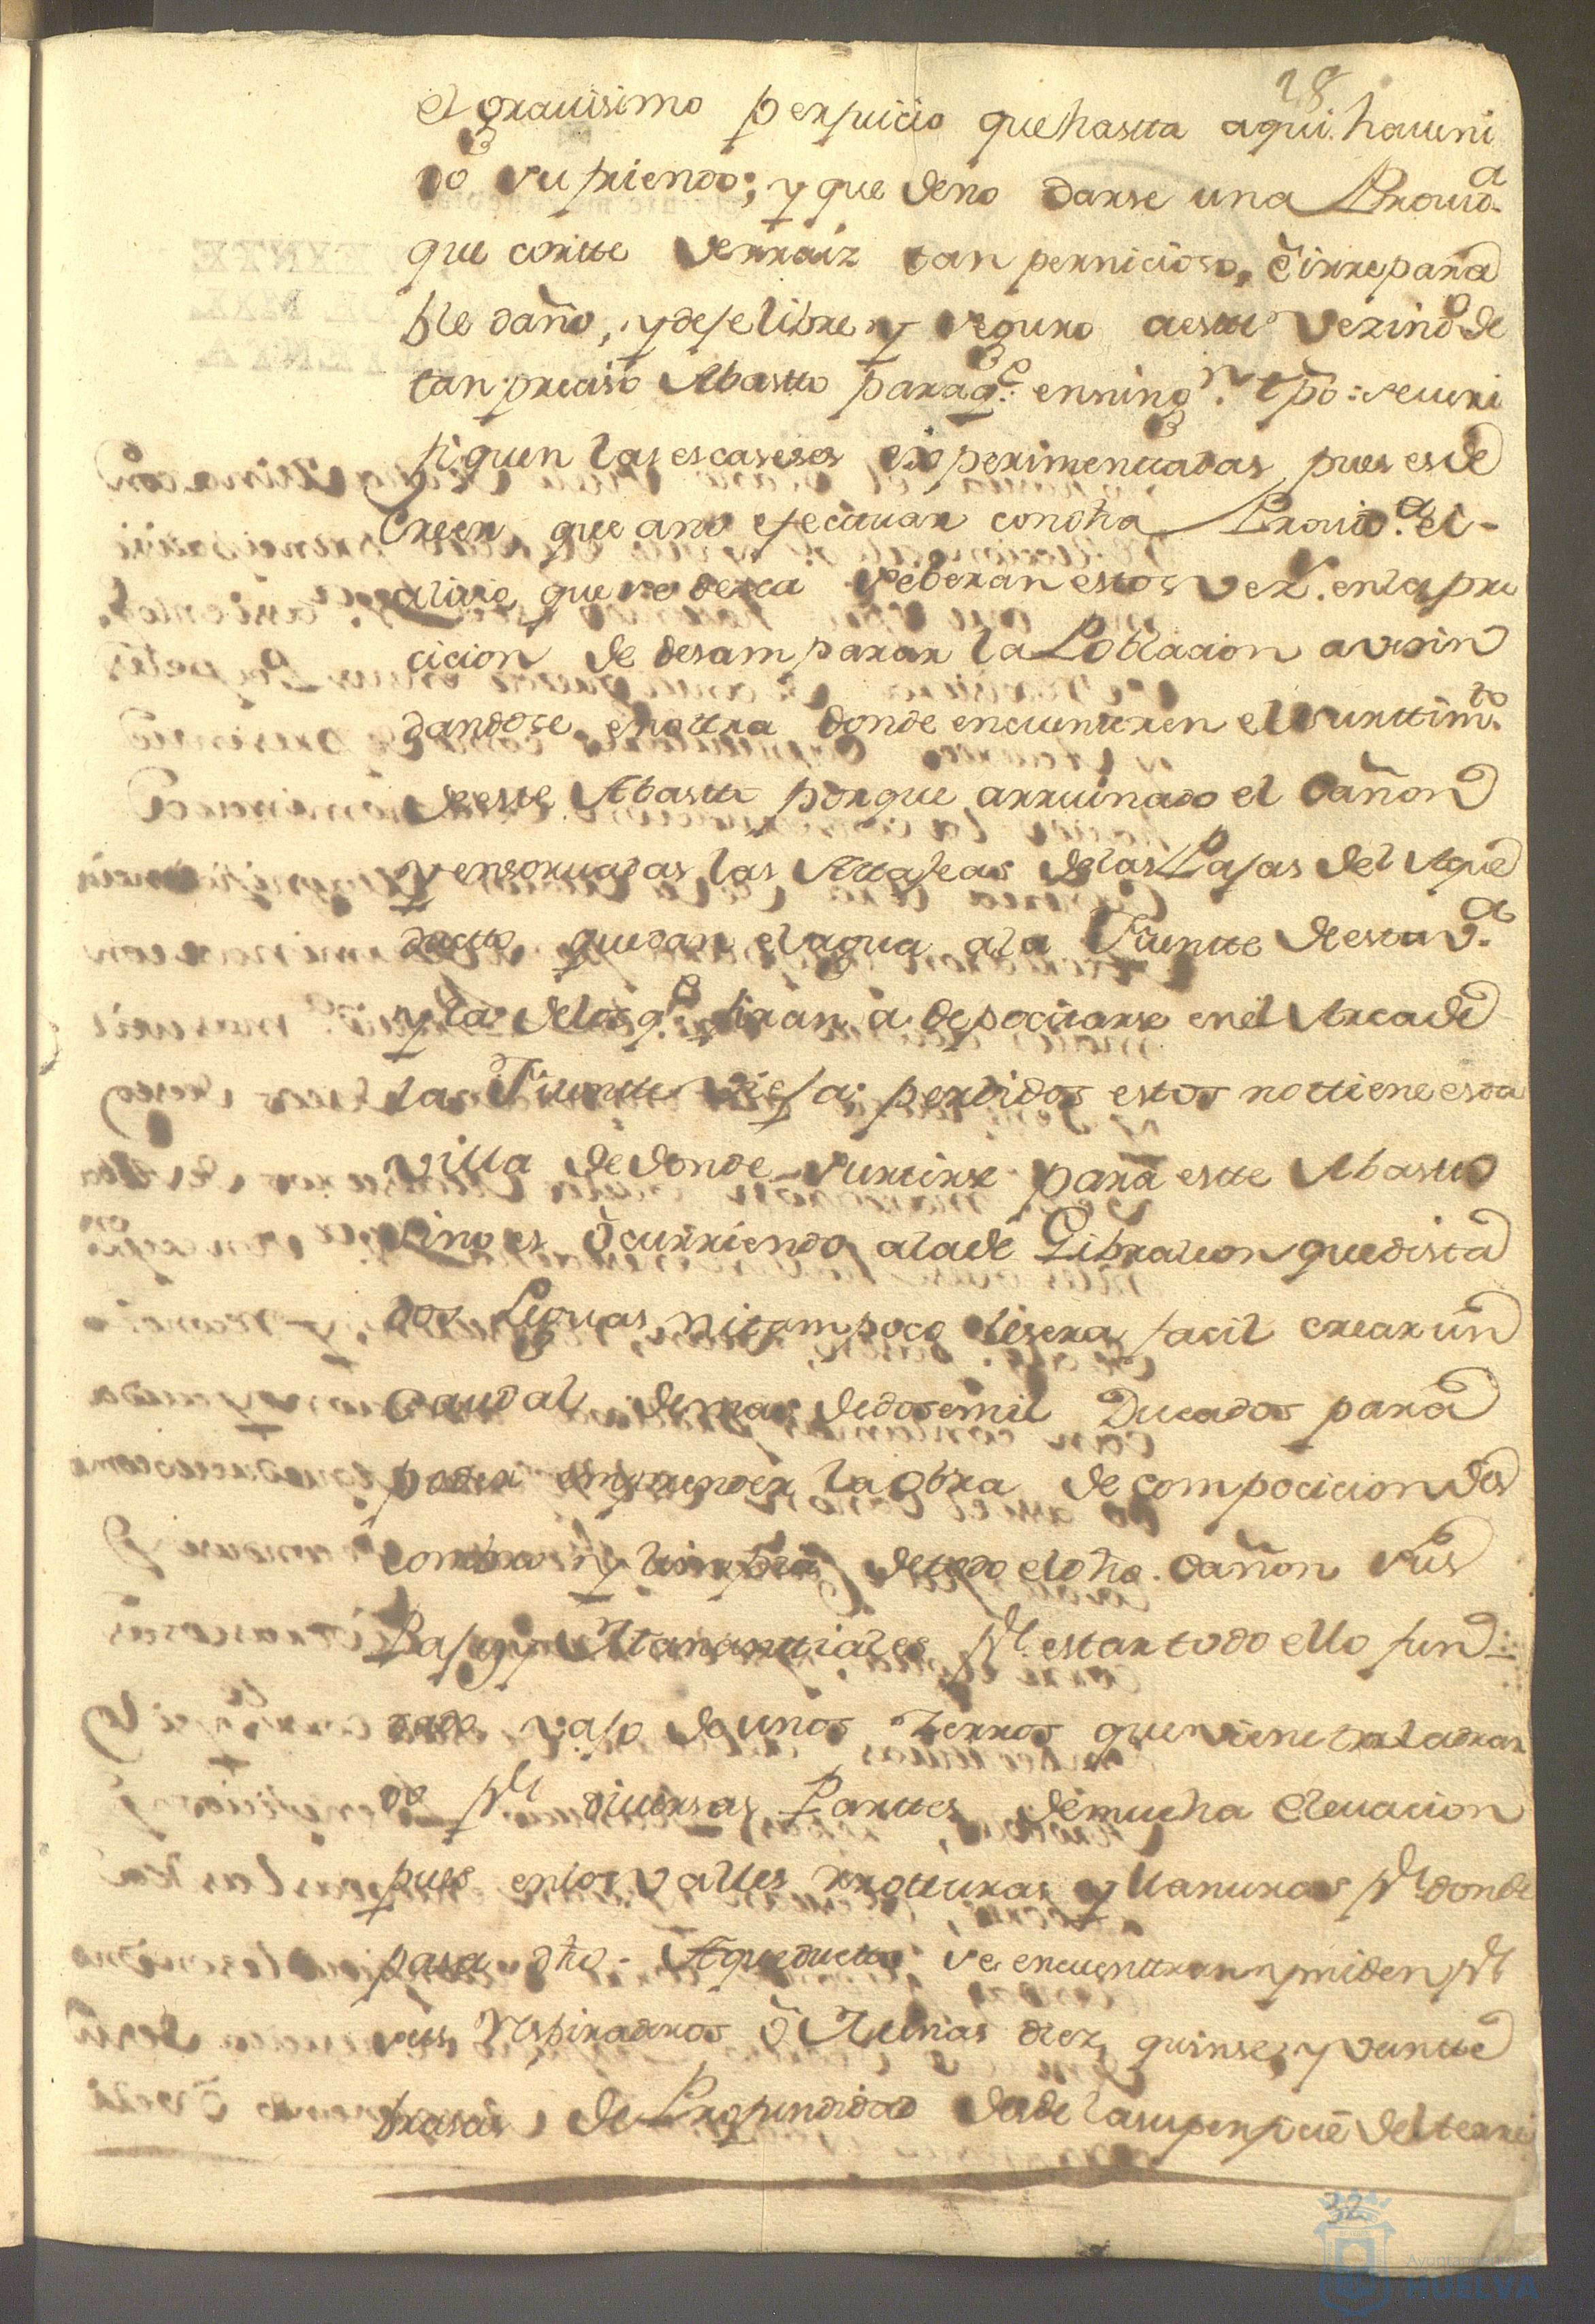 28
el grauisimo perjuicio que hastta aqui ha ueni
do sufriendo; y que de no darse una Prouid.a
que cortte de rraiz tan pernicioso, è irrepara
ble daño, y deje libre y seguro a estte Vezind.o de
tan preciso Abastto para q.e en ning.n tpo: se ueri
fiquen las escaseses experimenttadas, pues es de
Creer que a no efecttuar con dha Prouid.a el
aliuio que se desea se beran estos Vez.s en la pre
cicion de desamparar la Poblacion auesin
dandose en ottra donde encuentren el surttim.to
de estte Abastto porque arruinado el Cañon
y ensoruadas las Attajeas de las Lajas del Aque
ductto que dan el agua a la Fuentte de esta V.a
y la de los q.e tiran a depocitarse en el Arca de
la Fuentte Vieja; perdidos estos no ttiene esta
Villa de donde surtirse para estte Abastto
sino es òcurriendo a la de Gibraleon que dista
dos Leguas, ni tampoco le sera facil crear un
Caudal de mas de dos mil Ducados para
poder emprender la obra de compocicion des
combro y limpia de ttodo el dho. Cañon sus
Lajas y Manantiales p.r estar todo ello fun
dado vajo de unos Zerros que viene taladran
do p.r diuersas Parttes de mucha eleuacion
pues en los valles rrotturas y llanuras p.r donde
pasa dho. Aqueductto se encuenttran y miden p.r
sus Respiraderos ò Lumbreras diez, quinse, y veintte
brasas de Profundidad desde la superficie del terre
32
Ayuntamiento de
HUELVA